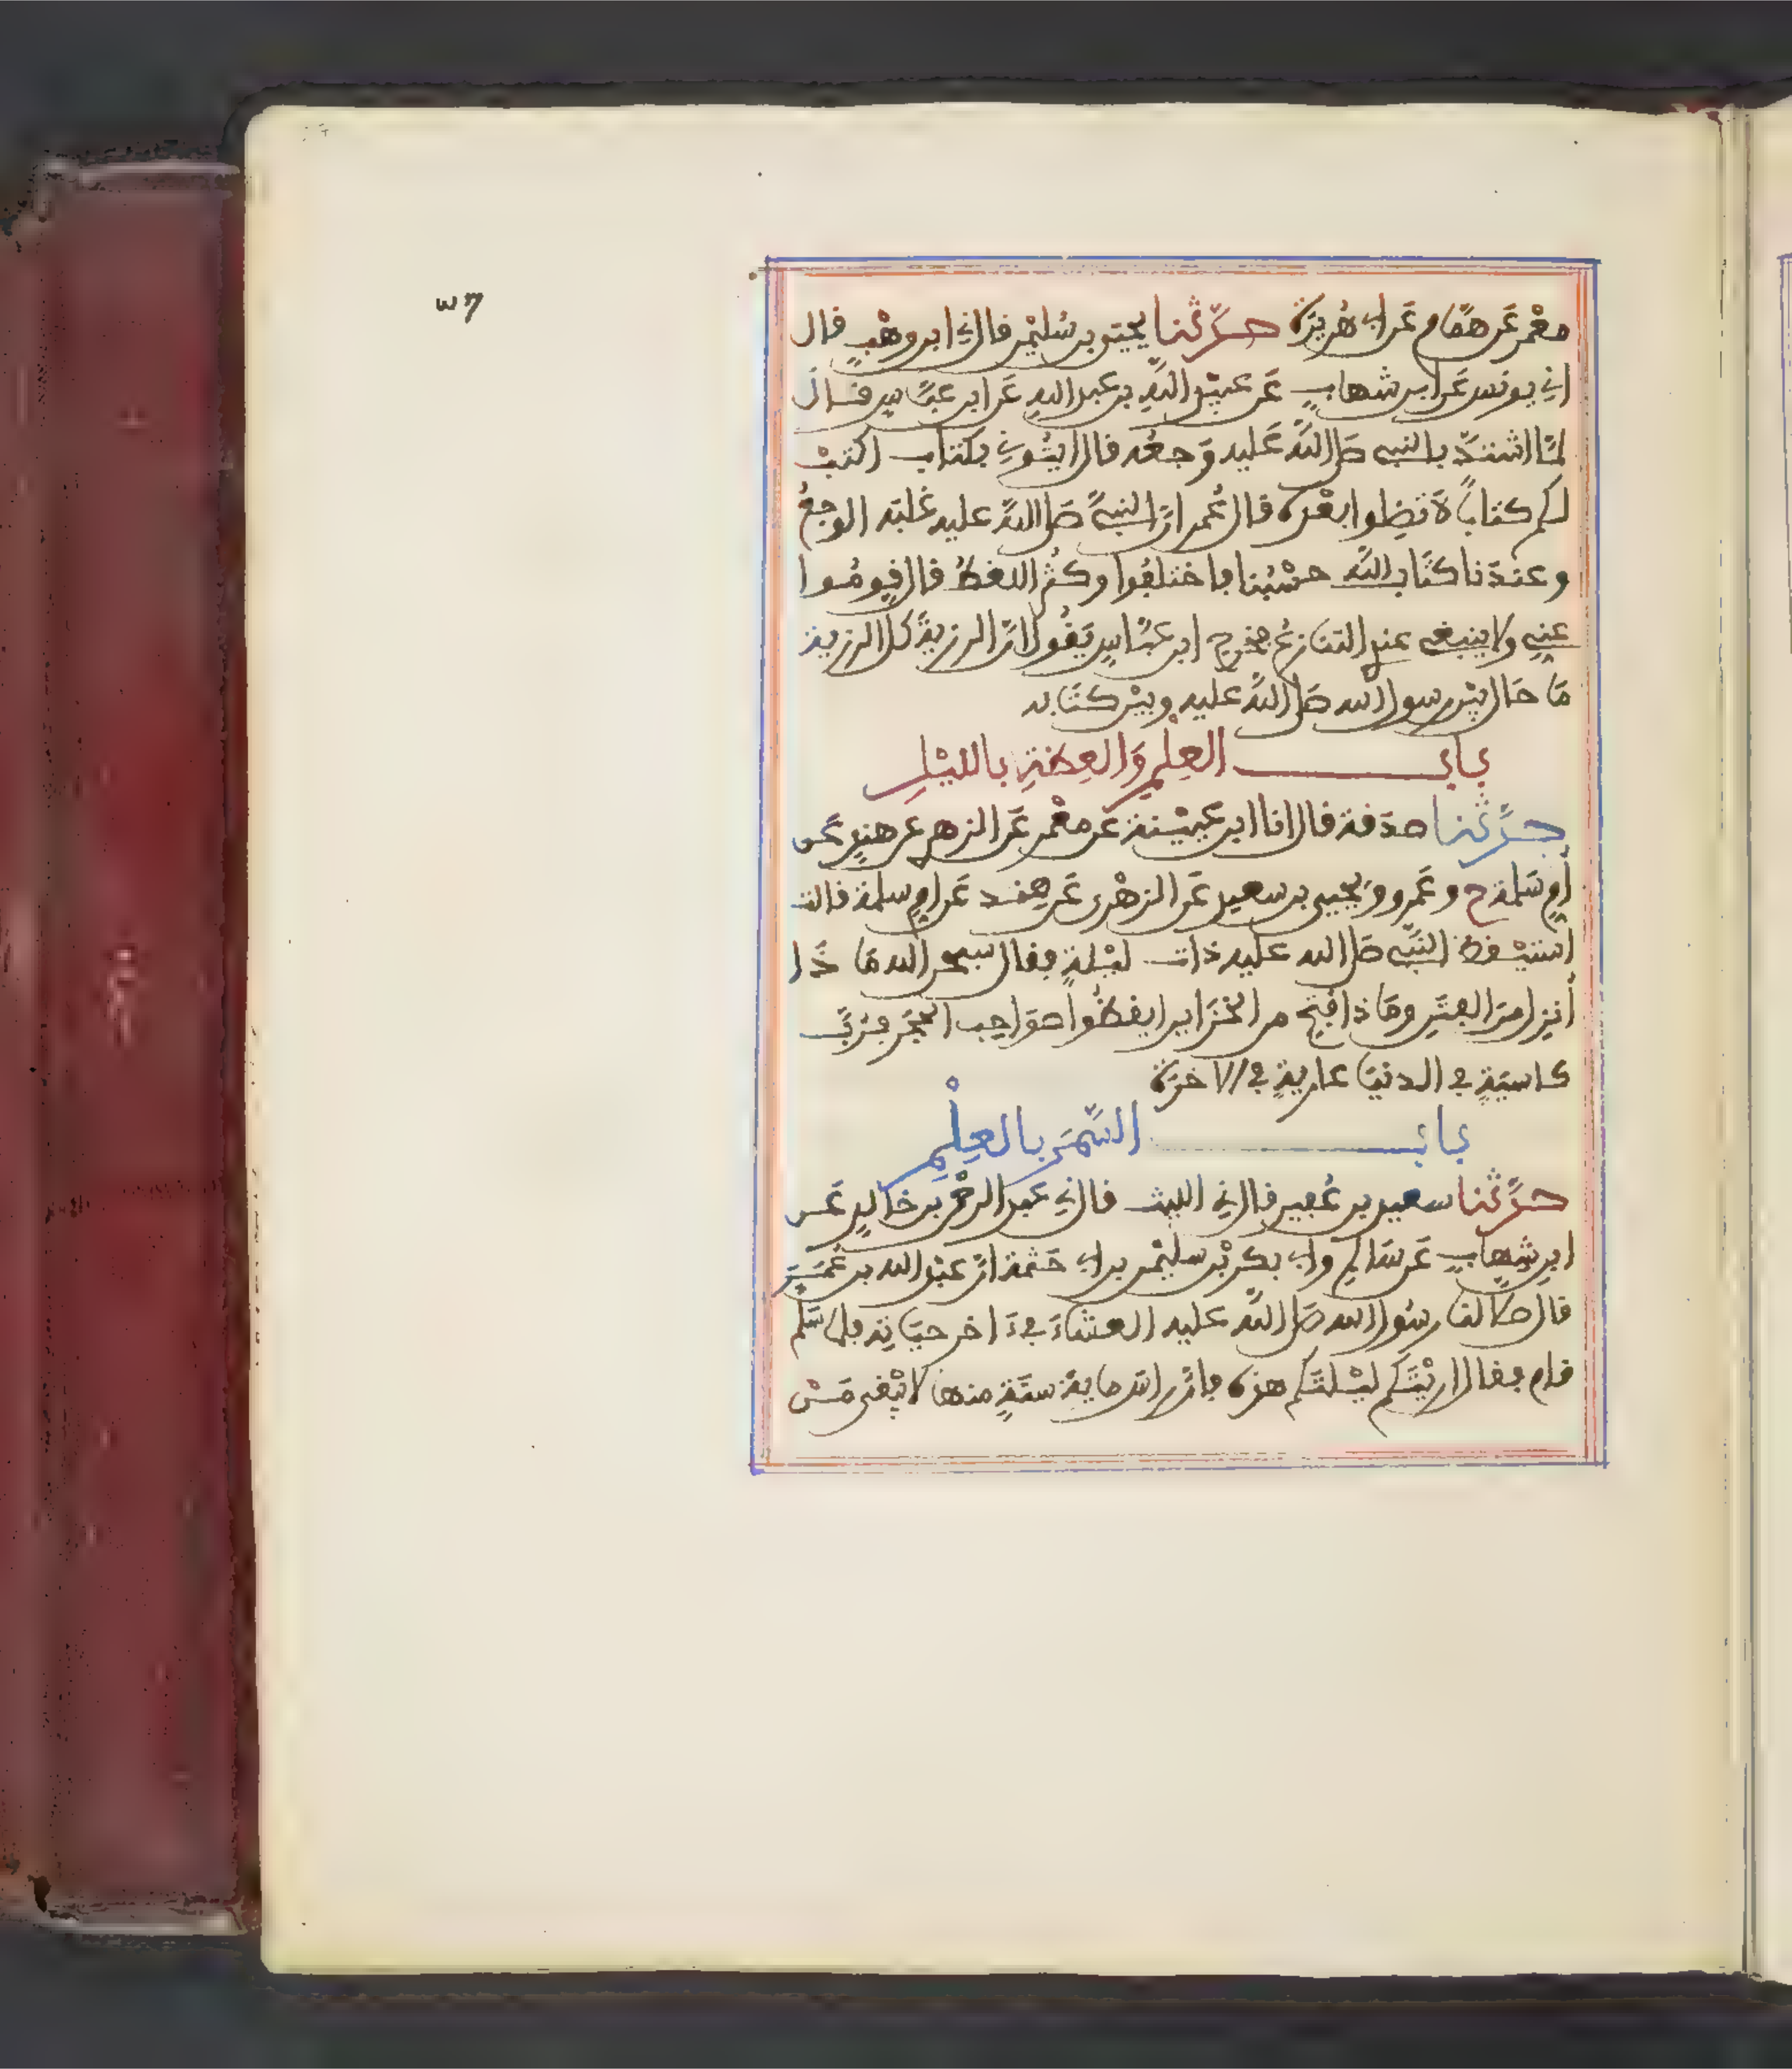 ٣٦
معْمر عَن همَّام عَن ابي هُريرَة حدَّثنا يحيَى بن سُليْمن قال ني ابن وهْبٍ قال
اني يونس عَن ابن شهابٍ عَن عبيْد اللَّهِ بن عبد الله عَن ابن عبَّاسٍ قال
لمَّا اشتدَّ بالنبي صَلى اللَّه عَليه وَجعُه قال ايتُوني بكتاب اكتبْ
لكم كتاباً لا تضِلوا بعْده قال عُمر انَّ النبيَّ صَلى اللهُ عليه غلبَه الوجعُ
وعندَنا كتَاب اللَّه حسْبُنا فاختلفُوا وكثُر اللغطُ قال قومُوا
عنِي ولا ينبغي عندِ التنازعُ فخرج ابن عبَّاسٍ يَقُول انَّ الرزيةَ كل الرزية
مَا حَال بيْن رسول الله صَلى اللَّه عليه وبيْن كتَابه
بابُ العِلْمِ وَالعِظةِ بالليْلِ
حدَّثنا صدَقة قال انا ابن عيَيْنة عَن معْمر عَن الزهري عن هندٍ عَن
أمِ سَلمة ح وعَمرو ويَحيى بن سعيدٍ عَن الزهْري عَن هِند عَن امِ سلمة قالت
استيْقظ النبِّي صَلى الله عليه ذات ليْلةٍ فقال سبحن الله مَا ذَا
أنزل مِنَ الفتَنِ ومَاذا فتِح من الخزَاين ايقظُوا صوَاحِب الحُجَر فرُبَّ
كاسيَةٍ في الدنيَا عاريةٍ في الاخرَة
بابُ السَّمَر بالعِلْمِ
حدَّثنا سعيد بن عُفير قال ني الليث قال ني عَبد الرحْمن بن خالدٍ عَن
ابن شِهابٍ عَن سَالمٍ وابي بكر بْن سليْمن بن ابي حَثمة انَّ عبْد الله بن عُمَرَ
قال صَلى لنا رسُول الله صَلى اللَّه عليه العشَاءَ في ءَاخر حيَاتِه فلمَّا سَلم
قام فقال ارايْتَكم ليْلتَكم هذه فانَّ راس مايةِ سنَةٍ منها لا يبْقى ممَّنْ